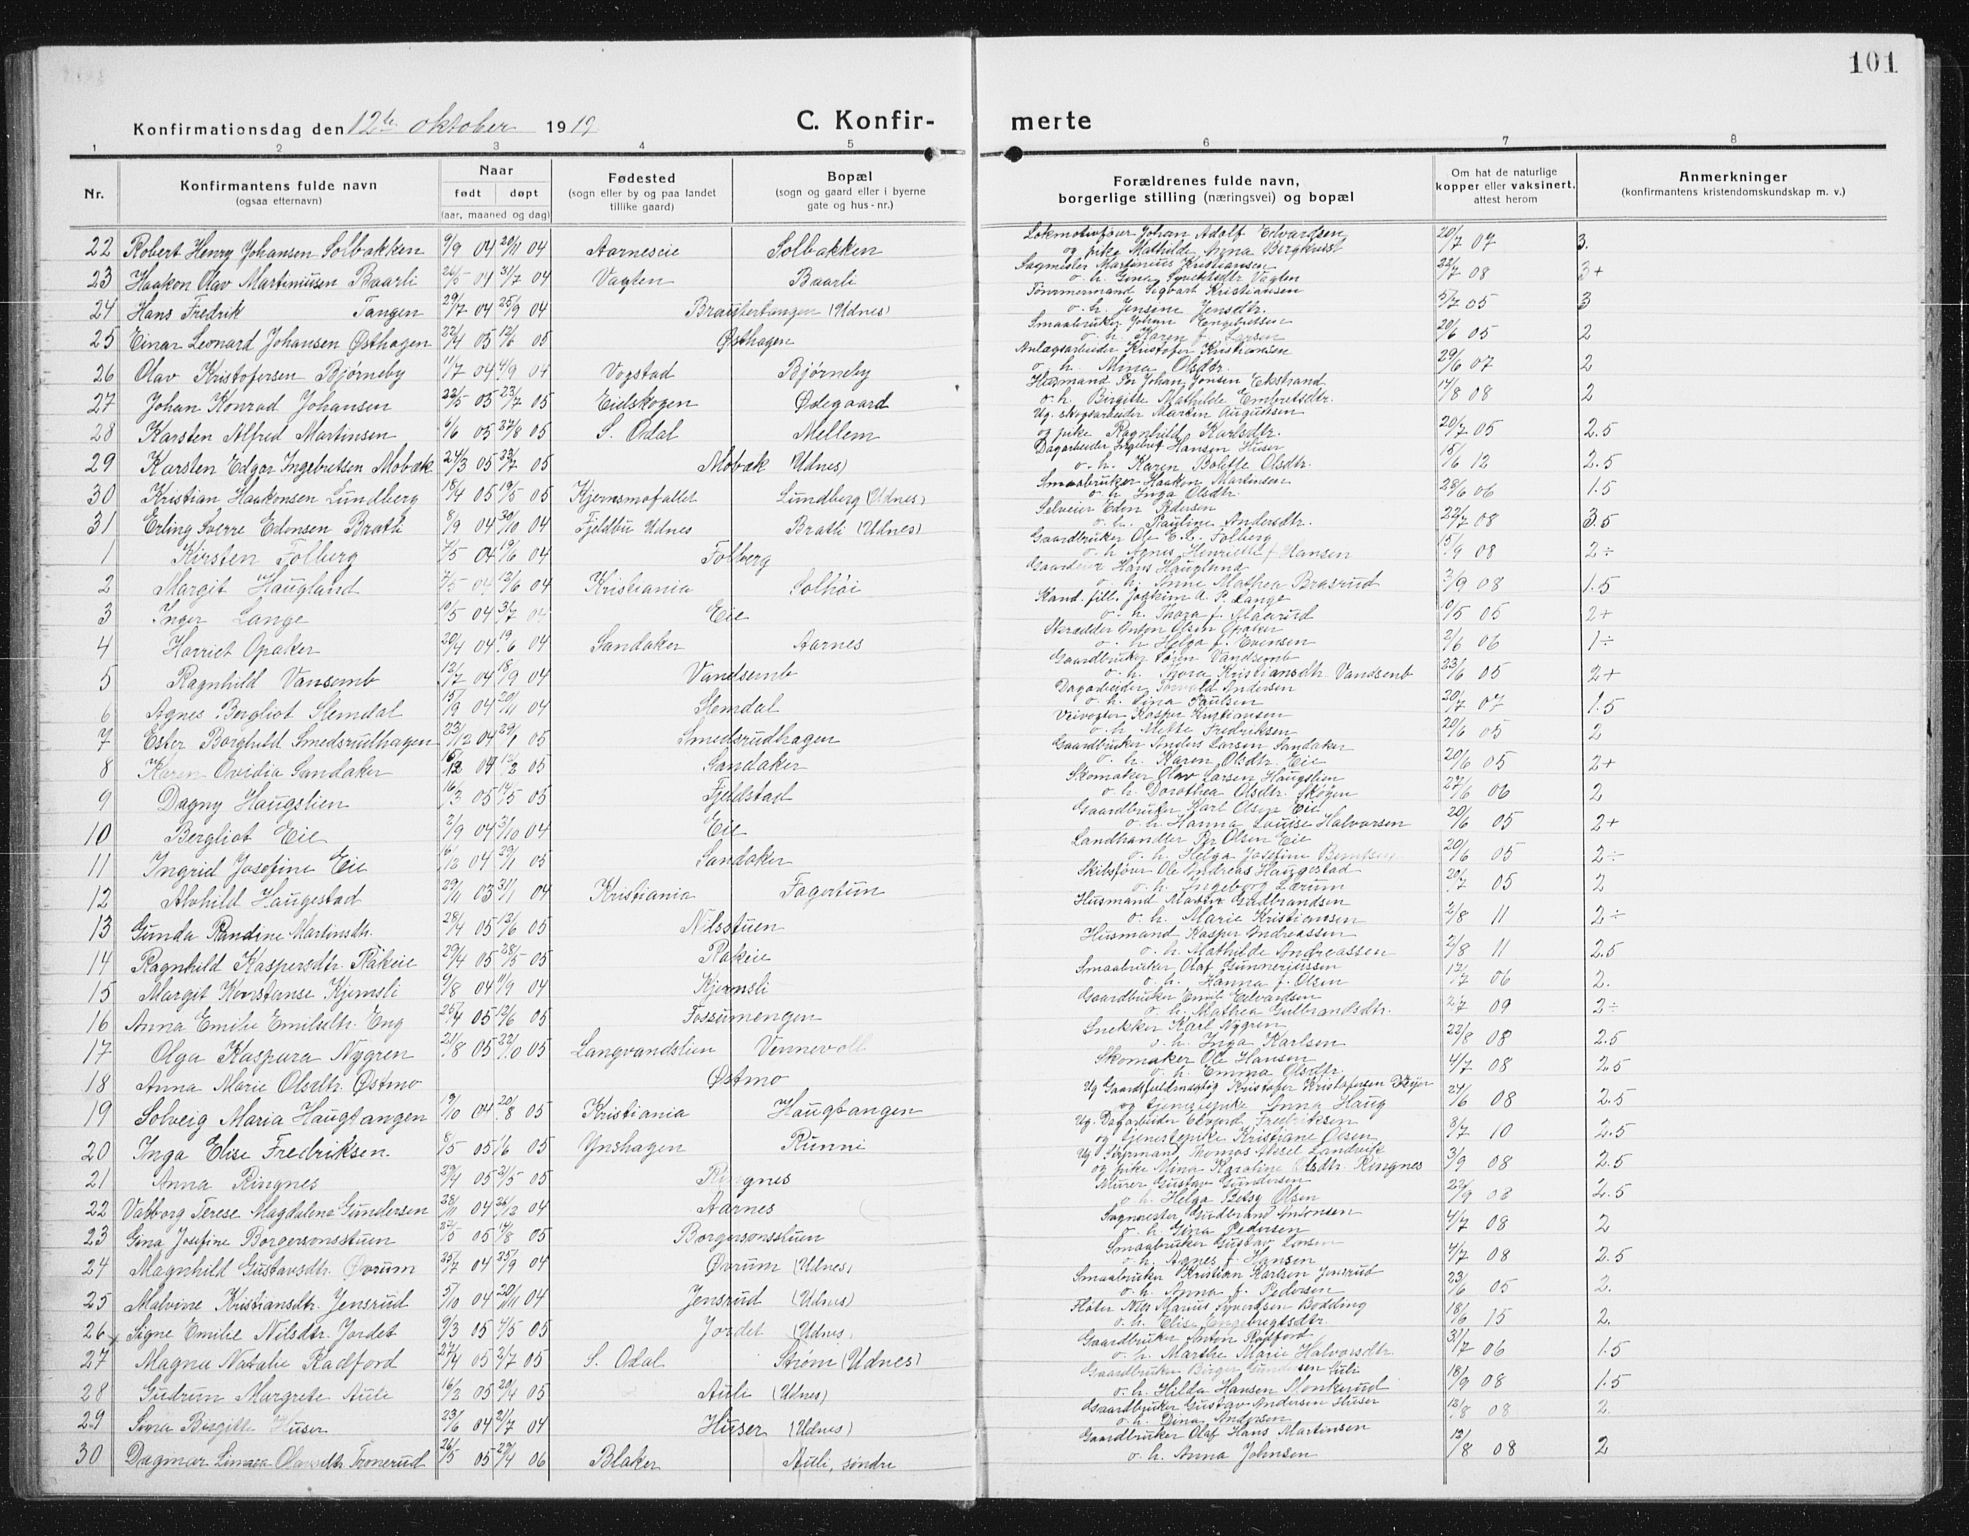 101
Konfirmationsdag den 12te oktober 1919
C. Konfir- merte
1 2 3 4 5 6 7 8
Nr.
Konfirmantens fulde navn (ogsaa efternavn)
Naar født døpt (aar, maaned og dag)
Fødested (sogn eller by og paa landet tillike gaard)
Bopæl (sogn og gaard eller i byerne gate og hus-nr.)
Forældrenes fulde navn, borgerlige stilling (næringsvei) og bopæl
Om hat de naturlige kopper eller vaksinert, attest herom
Anmerkninger (konfirmantens kristendomskundskap m. v.)
22 Robert Henry Johansen Solbakken 9/9 04 20/11 04 Aarneseie Solbakken Lokomotivfører Johan Adolf Edvardsen og pike Mathilde Anna Bergkvist 20/7 07 3.
23 Haakon Olav Martiniusen Baarli 26/5 04 31/7 04 Vagten Baarli Sagmester Martinius Kristiansen o. h. Gine Syvertsdtr. Vagten 22/7 08 3+
24 Hans Fredrik Tangen 29/7 04 25/9 04 (Udnes) Tømmermand Sigbart Kristiansen o. h. Jensine Jensdtr. 5/7 05 3
25 Einar Leonard Johansen Østhagen 22/4 05 12/6 05 Østhagen Smaabruker Johan Engebretsen o. h. Karen f. Larsen 20/6 05 2
26 Olav Kristofersen Bjørneby 11/7 04 4/9 04 Vogstad Bjørneby Anlægsarbeider Kristofer Kristiansen o. h. Mina Olsdtr. 29/6 07 2
27 Johan Konrad Johansen 22/5 05 23/7 05 Eidskogen Ødegaard Husmand Per Johan Jonsen Ekstrand o. h. Birgitte Mathilde Embretsdtr. 14/8 08 2
28 Karsten Alfred Martinsen 9/6 05 27/8 05 S. Odal Mellem Ug. skogsarbeider Martin Augunsen og pike Ragnhild Karlsdtr. 20/7 05 2.5
29 Karsten Edgar Ingebretsen Mobæk 24/3 05 23/7 05 Mobæk (Udnes) Dagarbeider Ingebret Hansen Huser o. h. Karen Bolette Olsdtr. 15/6 12 2.5
30 Kristian Haakonsen Lundberg 18/4 05 19/5 05 Kjernsmofallet Lundberg (Udnes) Smaabruker Haaken Martinsen o. h. Inga Olsdtr. 28/6 06 1.5
31 Erling Sverre Edensen Bratli 8/9 04 30/10 04 Fjeldbu Udnes Bratli (Udnes) Selveier Eden Pedersen o. h. Pauline Andersdtr. 22/7 08 3.5
1 Kirsten Folberg 7/5 04 19/6 04 Folberg Gaardbruker Ole E. L. Folberg o. h. Agnes Henriette f. Hansen 15/9 08 2÷
2 Margit Haugland 7/5 04 12/6 04 Kristiania Solhøi Gaardeier Hans Haugland o. h. Anne Mathea Braarud 3/9 08 1.5
3 Inger Lange 10/5 04 3/7 04 Eie Kand. fill. Joakim A. P. Lange o. h. Thora f. Maarud 10/5 05 2+
4 Harriet Opaker 20/4 04 19/6 04 Sandaker Aarnes Skrædder Anton Olsen Opaker o. h. Helga f. Evensen 2/6 06 1÷
5 Ragnhild Vansemb 12/7 04 18/9 04 Vandsemb Gaardbruker Søren Vandsemb o. h. Thora Kristiansdtr. Vandsemb 23/6 05 2+
6 Agnes Bergliot Slemdal 15/9 04 20/11 04 Slemdal Dagarbeider Torvald Andersen o. h. Lina Paulsen 20/7 07 1.5
7 Ester Borghild Smedsrudhagen 23/12 04 29/1 05 Smedsrudhagen Veivogter Kasper Kristiansen o. h. Mette Fredriksen 20/6 05 2
8 Karen Ovidia Sandaker Sandaker Gaardbruker Anders Larsen Sandaker o. h. Karen Olsdtr. Eie 20/6 05 2+
9 Dagny Haugslien 16/3 05 14/5 05 Fjeldstad Skomaker Olav Larsen Haugslien o. h. Dorothea Olsdtr. Skogen 27/6 06 2
10 Bergliot Eie 2/9 04 3/10 04 Eie Gaardbruker Karl Olsen Eie o. h. Hanna Louise Halvorsen 20/6 05 2+
11 Ingrid Josefine Eie 16/12 04 29/1 05 Sandaker Landhandler Per Olsen Eie o. h. Helga Josefine 20/6 05 2÷
12 Alvhild Haugestad 29/11 03 31/1 04 Kristiania Fagertun Skibsfører Ole Andreas Haugestad o. h. Ingeborg Lærum 20/7 05 2
13 Gunda Randine Martinsdtr. 28/4 05 12/6 05 Nilsstuen Husmand Martin Gudbrandsen o. h. Marie Kristiansen 2/8 11 2÷
14 Ragnhild Kaspersdtr. Rakeie 29/4 05 28/5 05 Rakeie Husmand Kasper Andreassen o. h. Mathilde Andreassen 2/8 11 2.5
15 Margit Konstanse Kjernsli 9/8 04 11/9 04 Kjernsli Smaabruker Olaf Gunneriussen o. h. Hanna f. Olsen 17/7 06 2.
16 Anna Emilie Emilsdtr. Eng 25/4 05 12/6 05 Fossumengen Gaardbruker Emil Edvardsen o. h. Mathea Gulbrandsdtr. 2/7 09 2÷
17 Olga Kaspara Nygren 21/8 05 22/10 05 Langvandslien Vennevoll Snekker Karl Nygren o. h. Inga Karlsen 22/8 08 2.5
18 Anna Marie Olsdtr. Østmo Østmo Skomaker Ole Hansen o. h. Emma Olsdtr. 4/7 08 2.5
19 Solveig Maria Haugtangen 9/10 04 20/8 05 Kristiania Haugtangen Ug Gaardsfuldmægtig Kristofer Kristofersen og tjenestepike Anna Haug 24/6 08 2.5
20 Inga Elise Fredriksen. 8/5 05 1/6 05 Ynshagen Runni Ug. Dagarbeider Edvard Fredriksen og tjenestepike Kristiane Olsen 8/7 10 2.5
21 Anna Ringnes 29/4 05 21/5 05 Ringnes Ug Styrmand Thomas Aksel Landvik og pike Mina Karoline Olsdtr. Ringnes 3/9 08 2.5
22 Valborg Terese Magdalena Gundersen 28/11 04 26/12 04 Aarnes Murer Gustav Gundersen o. h. Helga Betsy Olsen 23/9 08 2.5
23 Gina Josefine Borgersonsstuen 27/5 05 14/8 05 Borgersonsstuen Sagmester Gudbrand Antonsen o. h. Gina Pedersen 4/7 08 2
24 Magnhild Gustavsdtr. Øvrum 25/7 04 25/9 04 Øvrum (Udnes) Smaabruker Gustav Larsen o. h. Agnes f. Hansen 4/7 08 2.5
25 Malvine Kristiansdtr. Jensrud 5/10 04 20/11 04 Jensrud (Udnes) Smaabruker Kristian Karlsen Jensrud o. h. Anna f. Pedersen 23/6 05 2.
26 Signe Emilie Nilsdtr. Jordet 9/3 05 4/5 05 Jordet (Udnes) Fløter Nils Marius Syvertsen Bodding o. h. Elise Engebregtsdtr. 18/6 15 2.
27 Magna Natalie Radford 27/4 05 2/7 05 S. Odal Strøm (Udnes) Gaardbruker Anton Radford o. h. Marthe Marie Halvorsdtr. 31/7 06 1.5
28 Gudrun Margrete Aule 16/2 05 20/4 05 Auli (Udnes) Gaardbruker Birger Gundersen Auli o. h. Hilda Hansen Monkerud 18/9 08 1.5
29 Birgitte Huser 23/6 04 21/7 04 Huser (Udnes) Gaardbruker Gustav Andersen Huser o. h. Dina Andersen 13/8 08 2
30 Dagmar Tronerud 26/5 05 29/4 06 Blaker Auli, søndre Gaardbruker Olaf Hans Martinsen o. h. Anna Johnsen 12/8 08 2